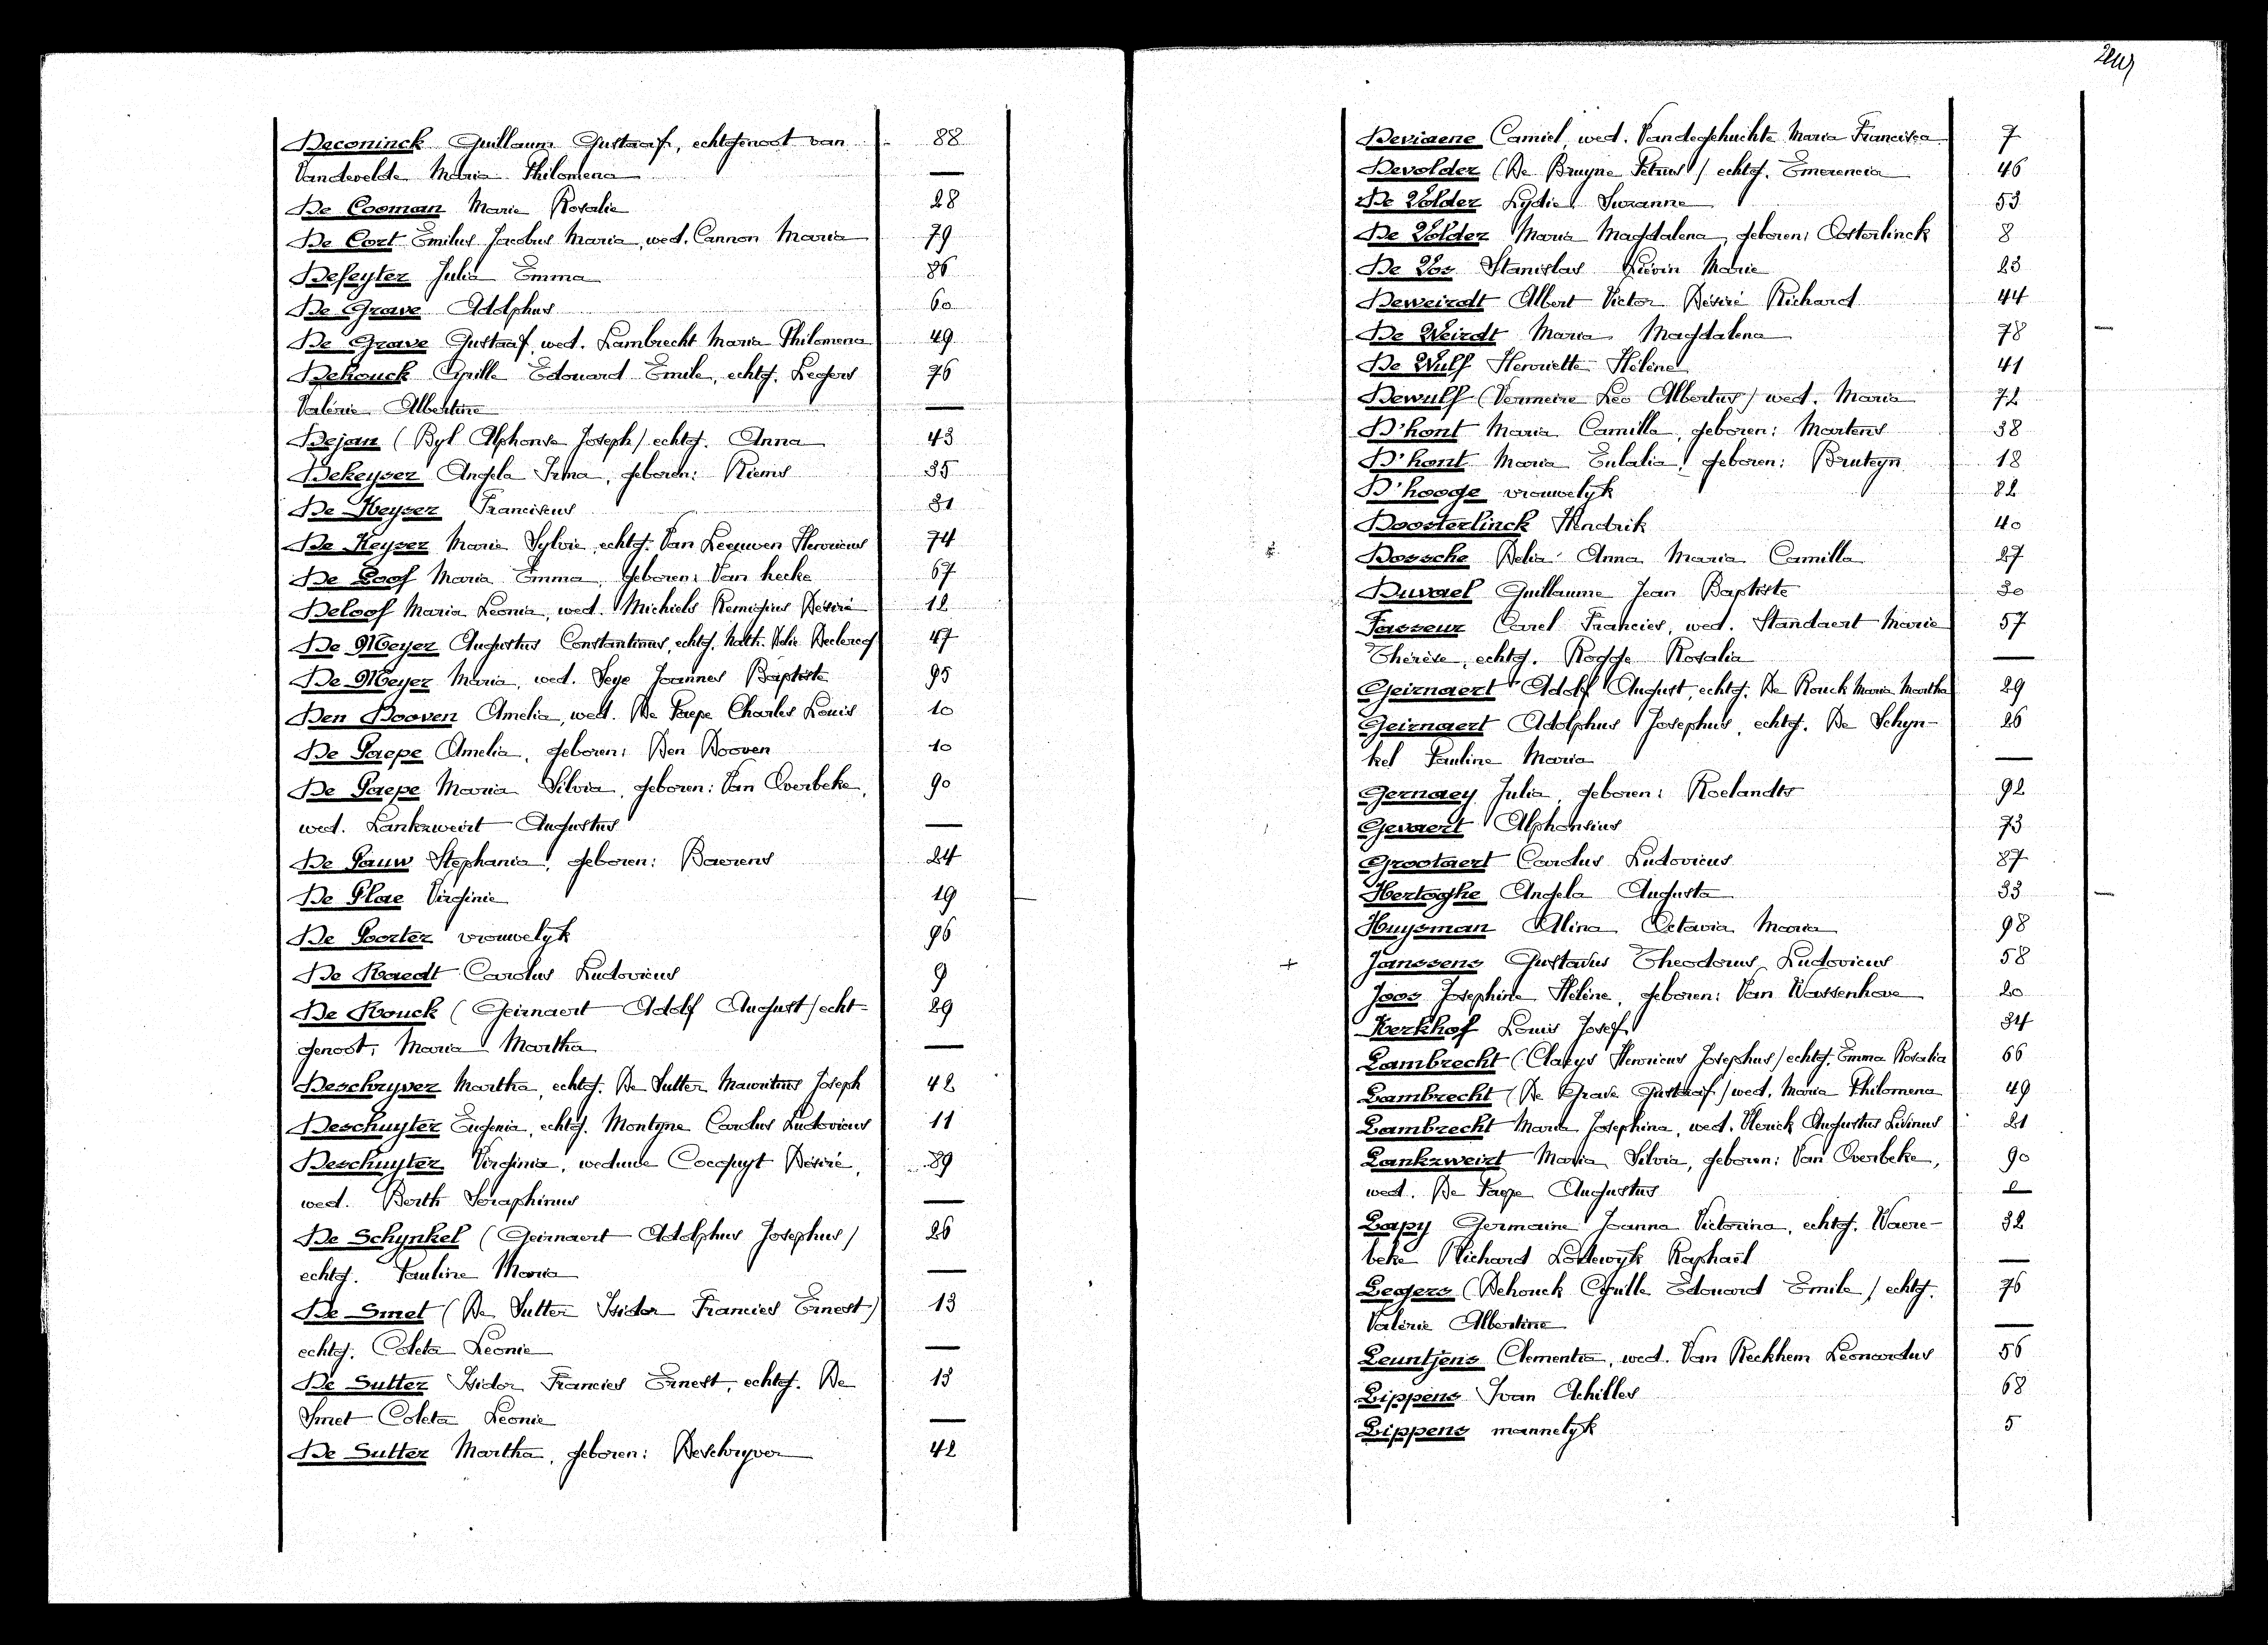 Deconinck Guillaum Gustaaf, echtgenoot van 88
Vandevelde Maria Philomena —
De Cooman Marie Rosalie 28
De Cort Emilus Jacobus Maria, wed. Cannon Maria 79
Defeyter Julia Emma 86
De Grave Adolphus 60
De Grave Gustaaf, wed. Lambrecht Maria Philomena 49
Dehouck Cyrille Edouard Emile, echtg. Legers 76
Valérie Albertine —
Dejan (Byl Alphonse Joseph/ echtg. Anna 43
Dekeyser Angela Irma, geboren: Riems 35
De Keyser Franciscus 31
De Keyser Marie Sylvie, echtg. Van Leeuwen Henricus 74
De Loof Maria Emma, geboren: Van hecke 67
Deloof Maria Leonia, wed. Michiels Remigius Désiré 12
De Meyer Augustus Constantinus, echtg. Nath. Julie Declercq 47
De Meyer Maria, wed. Seye Joannes Baptiste 95
Den Dooven Amelia, wed. De Paepe Charles Louis 10
De Paepe Amelia, geboren: Den Dooven 10
De Paepe Maria Silvia, geboren: Van Overbeke, 90
wed. Lankzweirt Augustus —
De Pauw Stephania, geboren: Baerens 24
De Plae Virginie 19
De Poorter vrouwelyk 96
De Raedt Carolus Ludovicus 9
De Rouck (Geirnaert Adolf August/ echt- 29
genoot, Maria Martha —
Deschryver Martha, echtg. De Sutter Mauritius Joseph 42
Deschuyter Eugenia, echtg. Montyne Carolus Ludovicus 11
Deschuyter Virginia, weduwe Cocquyt Désiré, 89
wed. Berth Seraphinus —
De Schynkel (Geirnaert Adolphus Josephus/ 26
echtg. Pauline Maria —
De Smet (De Sutter Isidor Francies Ernest) 13
echtg. Coleta Leonie —
De Sutter Isidor Francies Ernest, echtg. De 13
Smet Coleta Leonie —
De Sutter Martha, geboren: Deschryver 42
Deviaene Camiel, wed. Vandegehuchte Maria Francisca 7
Devolder (De Bruyne Petrus/ echtg. Emerencia 46
De Volder Lydie Suzanne 53
De Volder Maria Magdalena, geboren: Oosterlinck 8
De Vos Stanislas Liévin Marie 23
Deweirdt Albert Victor Désiré Richard 44
De Weirdt Maria Magdalena 78
De Wulf Henriette Hélène 41
Dewulf (Vermeire Leo Albertus/ wed. Maria 72
D'hont Maria Camilla, geboren: Martens 38
D'hont Maria Eulalia, geboren: Bruteyn 18
D'hooge vrouwelyk 82
Doosterlinck Hendrik 40
Dossche Delia Anna Maria Camilla 27
Duvael Guillaume Jean Baptiste 30
Fasseur Carel Francies, wed. Standaert Marie 57
Thérèse, echtg. Rogge Rosalia —
Geirnaert Adolf August, echtg. De Rouck Maria Martha 29
Geirnaert Adolphus Josephus, echtg. De Schyn- 26
kel Pauline Maria —
Gernaey Julia, geboren: Roelandts 92
Gevaert Alphonsius 73
Grootaert Carolus Ludovicus 87
Hertoghe Angela Augusta 33
Huysman Alina Octavia Maria 98
+ Janssens Gustavus Theodorus Ludovicus 58
Joos Josephine Hélène, geboren: Van Wassenhove 20
Kerkhof Louis Josef 34
Lambrecht (Claeys Henricus Josephus/ echtg. Emma Rosalia 66
Lambrecht (De Grave Gustaaf/ wed. Maria Philomena 49
Lambrecht Maria Josephina, wed. Augustus Livinus 21
Lankzweirt Maria Silvia, geboren: Van Overbeke, 90
wed. De Paepe Augustus —
Lapy Germaine Joanna Victorina, echtg. Waere- 32
beke Richard Lodewyk Raphaël —
Legers (Dehouck Cyrille Edouard Emile/ echtg. 76
Valérie Albertine —
Leuntjens Clementia, wed. Van Reckhem Leonardus 56
Lippens Ivan Achilles 68
Lippens mannelyk 5